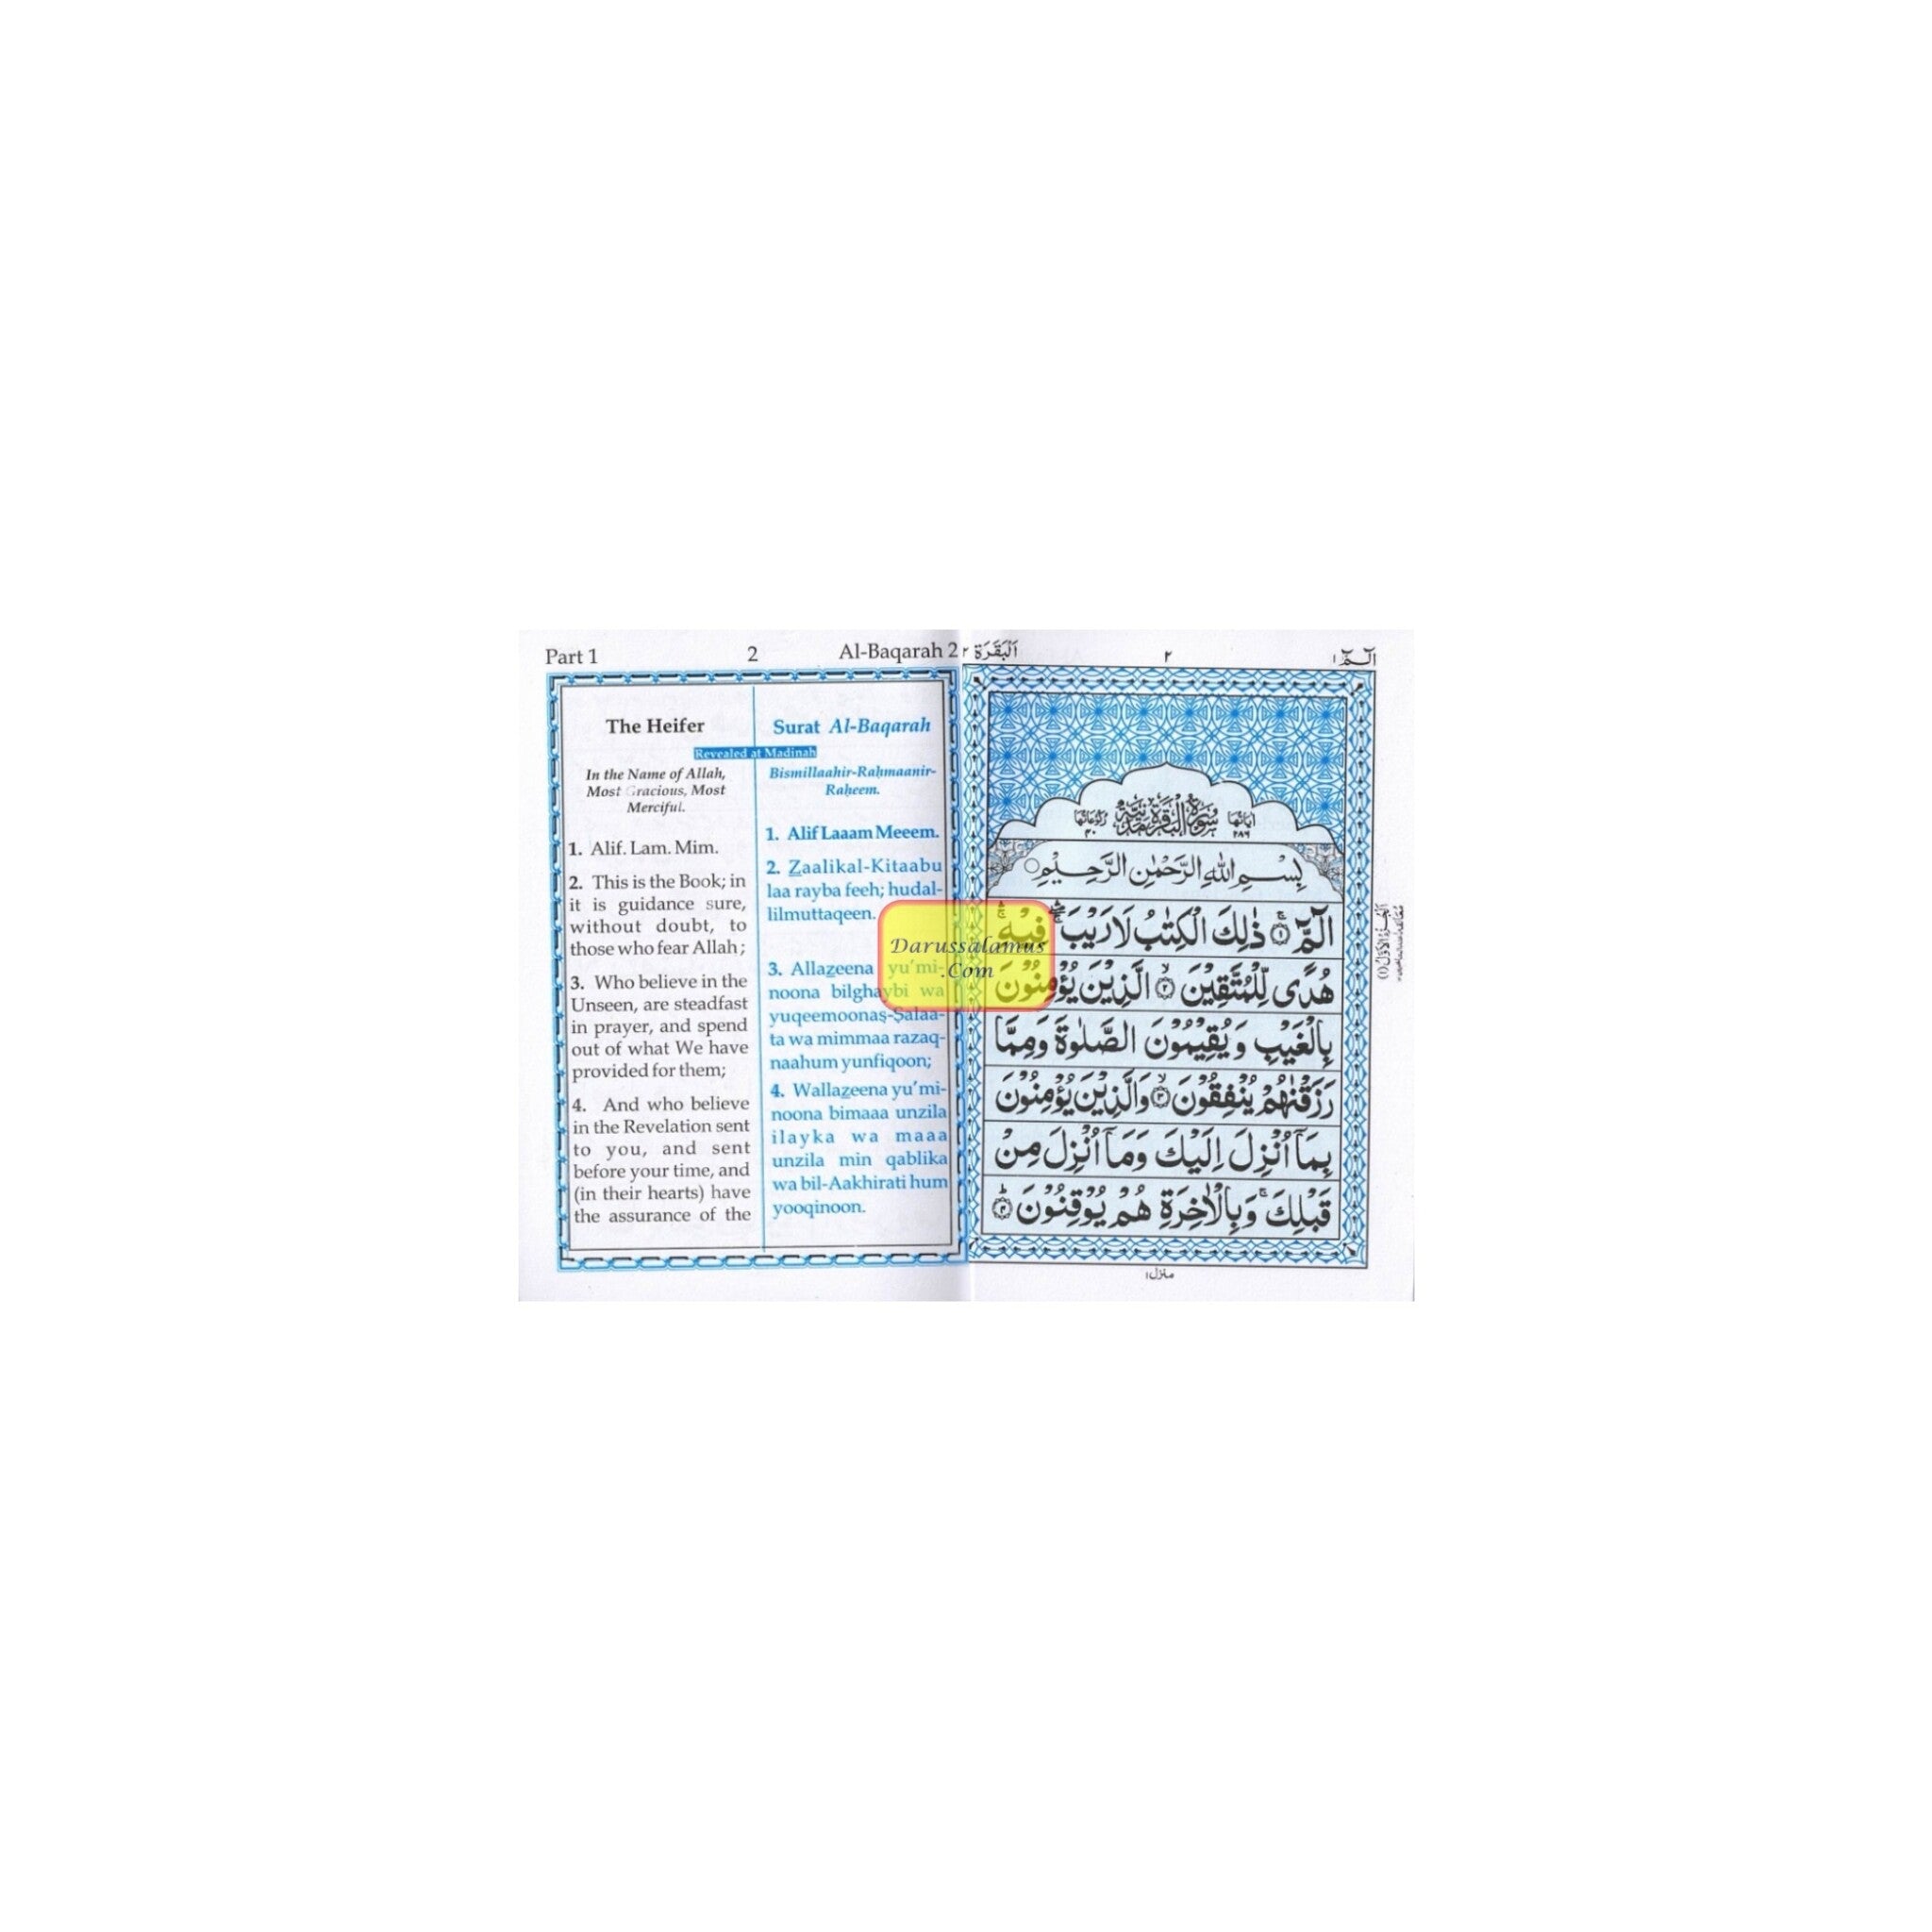 Part 1 2 Al-Baqarah 2
The Heifer
Revealed at Madinah
In the Name of Allah,
Most Gracious, Most
Merciful.
1. Alif. Lam. Mim.
2. This is the Book; in
it is guidance sure,
without doubt, to
those who fear Allah;
3. Who believe in the
Unseen, are steadfast
in prayer, and spend
out of what We have
provided for them;
4. And who believe
in the Revelation sent
to you, and sent
before your time, and
(in their hearts) have
the assurance of the
Surat Al-Baqarah
Bismillaahir-Raḥmaanir-
Raḥeem.
1. Alif Laaam Meeem.
2. Z̲aalikal-Kitaabu
laa rayba feeh; hudal-
lilmuttaqeen.
3. Allaz̲eena yu’mi-
noona bilghaybi wa
yuqeemoonaṣ-Ṣalaa-
ta wa mimmaa razaq-
naahum yunfiqoon;
4. Wallaz̲eena yu’mi-
noona bimaaa unzila
ilayka wa maaa
unzila min qablika
wa bil-Aakhirati hum
yooqinoon.
Darussalamus
.Com
الٓمّٓ ١ ٢ اَلْبَقَرَة ٢
اٰيَاتُهَا ٢٨٦ سُوْرَةُ الْبَقَرَةِ مَدَنِيَّةٌ رُكُوْعَاتُهَا ٤٠
بِسْمِ اللّٰهِ الرَّحْمٰنِ الرَّحِيْمِ ○
الٓمّٓ ۚ ١ ذٰلِكَ الْكِتٰبُ لَا رَيْبَ ۛ فِيْهِ ۛ
هُدًى لِّلْمُتَّقِيْنَ ۙ ٢ الَّذِيْنَ يُؤْمِنُوْنَ
بِالْغَيْبِ وَيُقِيْمُوْنَ الصَّلٰوةَ وَمِمَّا
رَزَقْنٰهُمْ يُنْفِقُوْنَ ۙ ٣ وَالَّذِيْنَ يُؤْمِنُوْنَ
بِمَآ اُنْزِلَ اِلَيْكَ وَمَآ اُنْزِلَ مِنْ
قَبْلِكَ ۚ وَبِالْاٰخِرَةِ هُمْ يُوْقِنُوْنَ ؕ ٤
منزل ١
اَلْجُزْءُ الْاَوَّلُ (١)